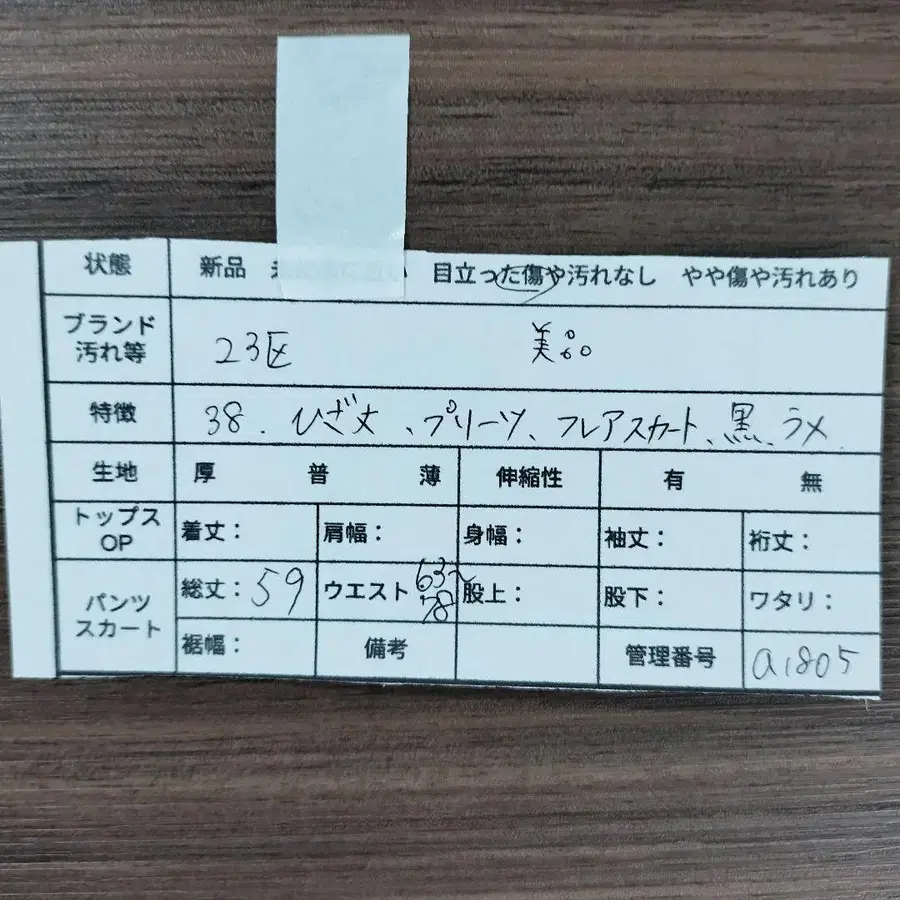 状態 新品 目立った傷や汚れなし やや傷や汚れあり
ブランド
汚れ等 23区 美品
特徴 38. ひざ丈、プリーツ、フレアスカート、黒、ラメ
生地 厚 普 薄 伸縮性 有 無
トップス
OP 着丈: 肩幅: 身幅: 袖丈: 裄丈:
パンツ
スカート 総丈: 59 ウエスト 63~78 股上: 股下: ワタリ:
裾幅: 備考 管理番号 a1805